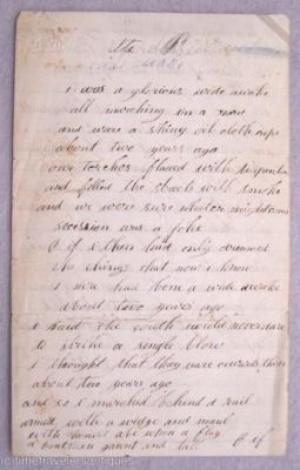 the
i was a glorious wide awake
all marching in a row
and wore a shiny oil cloth cape
about two years ago
our torches flared with turpentine
and filled the streets with smoke
and we were sure whatever might come
secession was a joke
O if i then had only dreamed
the things that now i know
i neer had been a wide awake
about two years ago
i said the south would never dare
to strike a single blow
i thought that they were cowards then
about two years ago
and so i marched behind a rail
armed with a wedge and maul
with honest abe upon a flag
a boatman gaunt and tall O if